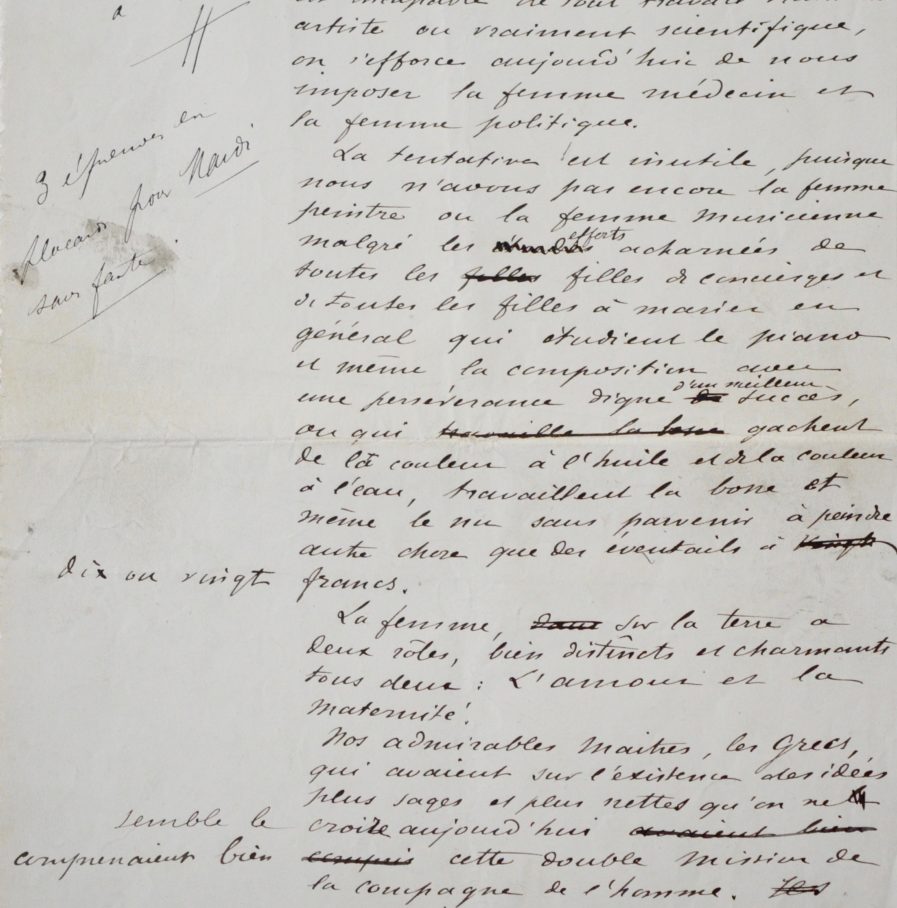 est incapable de tout travail vraiment
artiste ou vraiment scientifique,
on s'efforce aujourd'hui de nous
imposer la femme médecin et
la femme politique.
3 épreuves en
placard pour Mardi
sans faute.
La tentative est inutile, puisque
nous n'avons pas encore la femme
peintre ou la femme musicienne
malgré les efforts acharnées de
toutes les filles filles de concierges et
de toutes les filles à marier en
général qui étudient le piano
et même la composition avec
une persévérance digne de d'un meilleur succès,
ou qui travaille la bosse gachent
de la couleur à l'huile et de la couleur
à l'eau, travaillent la bosse et
même le nu sans parvenir à peindre
autre chose que des éventails à vingt
dix ou vingt francs.
La femme, dans sur la terre a
deux rôles, bien distincts et charmants
tous deux : L'amour et la
maternité.
Nos admirables maitres, les Grecs,
qui avaient sur l'existence des idées
plus sages et plus nettes qu'on ne
semble le
croire aujourd'hui avaient bien
comprenaient bien
compris cette double mission de
la compagne de l'homme. Ils